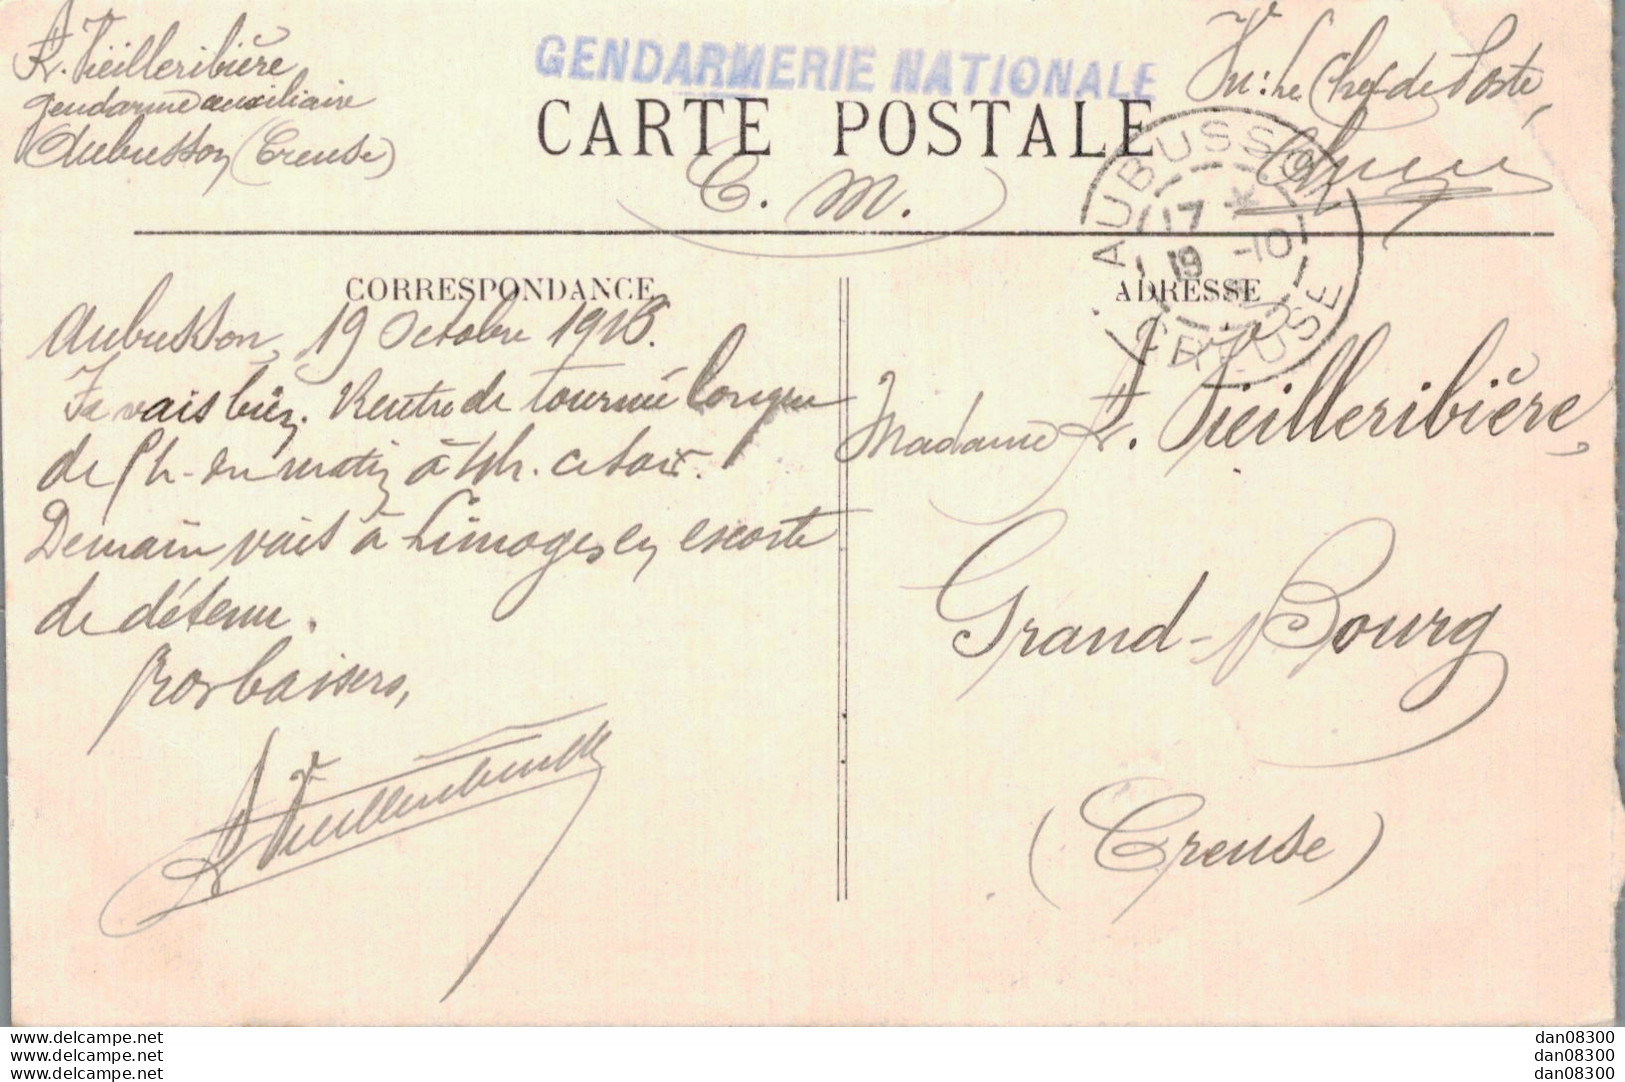 A. Vieilleribière
gendarme auxiliaire
Aubusson (Creuse)
GENDARMERIE NATIONALE
CARTE POSTALE
C. M.
Vu: Le Chef de Poste,
AUBUSSON
17 *
19 -10
CREUSE
CORRESPONDANCE
Aubusson, 19 Octobre 1915.
Je vais bien. Rentre de tournée longue
de 8h. du matin à 4h. ce soir.
Demain vais à Limoges en escorte
de détenu.
Bons baisers,
A. Vieilleribière
ADRESSE
Madame A. Vieilleribière,
Grand-Bourg
(Creuse)
www.delcampe.net
www.delcampe.net
www.delcampe.net
dan08300
dan08300
dan08300